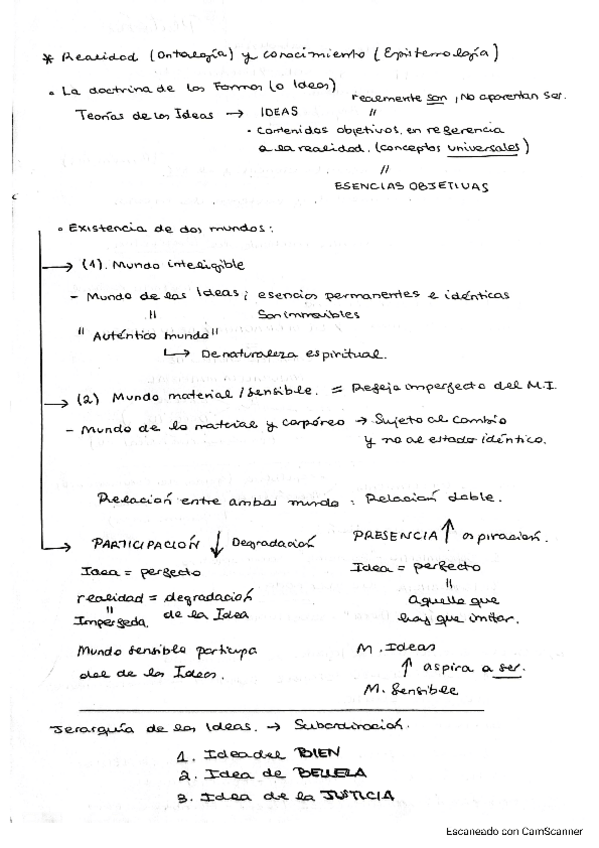 * Realidad (Ontología) y conocimiento (Epistemología)
• La doctrina de las Formas (o Ideas)
realmente son, No aparentan ser.
Teorías de las Ideas → IDEAS "
• contenidos objetivos, en referencia
a la realidad. (conceptos universales)
"
ESENCIAS OBJETIVAS
• Existencia de dos mundos:
→ (1). Mundo inteligible
- Mundo de las Ideas; esencias permanentes e idénticas
" Son inmovibles
"Auténtico mundo"
↳ De naturaleza espiritual.
→ (2) Mundo material / sensible. = Reflejo imperfecto del M.I.
- Mundo de lo material y corpóreo → Sujeto al cambio
y no al estado idéntico.
Relación entre ambos mundo : Relación doble.
→ PARTICIPACIÓN ↓ Degradación
Idea = perfecto
realidad = degradación
" de la Idea
Imperfecta.
Mundo sensible participa
del de las Ideas.
PRESENCIA ↑ aspiración.
Idea = perfecto
"
aquello que
hay que imitar.
M. Ideas
↑ aspira a ser.
M. Sensible
Jerarquía de las Ideas. → Subordinación.
1. Idea del BIEN
2. Idea de BELLEZA
3. Idea de la JUSTICIA
Escaneado con CamScanner